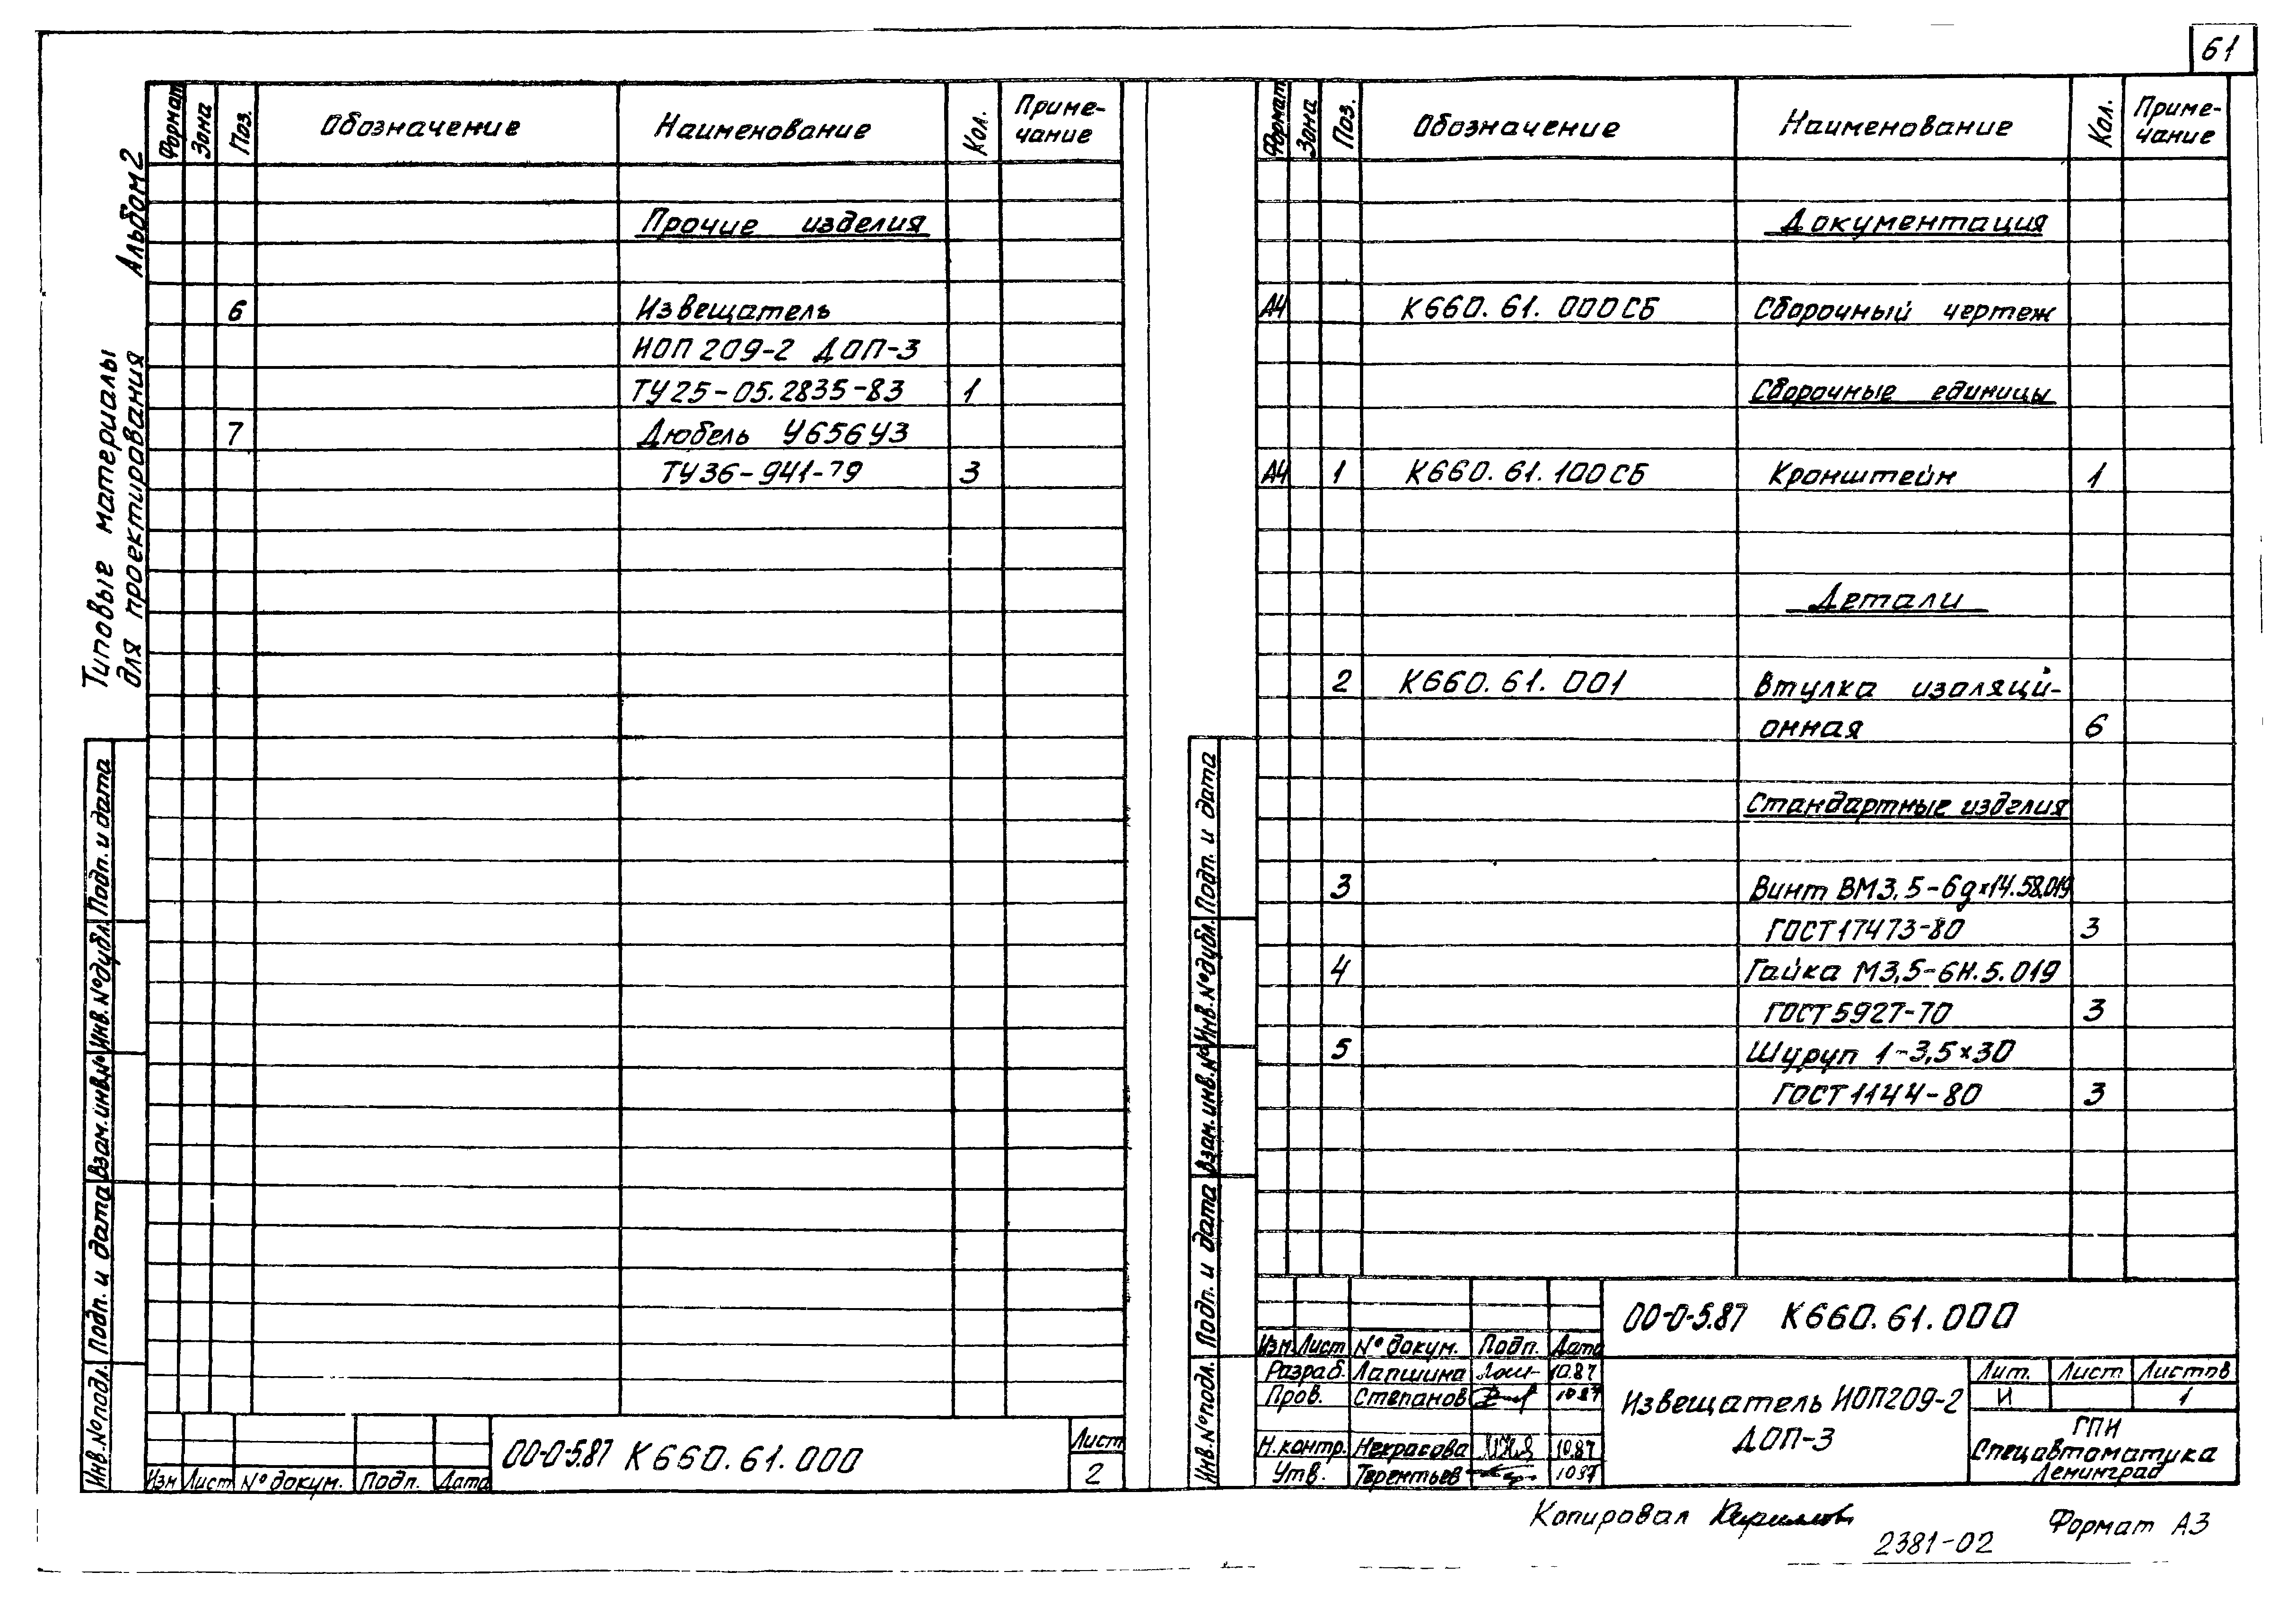 61
Альбом 2
Типовые материалы
для проектирования
Формат Зона Поз. Обозначение Наименование Кол. Приме-
чание
Прочие изделия
6 Извещатель
ИОП 209-2 ДОП-3
ТУ25-05.2835-83 1
7 Дюбель У656У3
ТУ36-941-79 3
Подп. и дата
Инв.№дубл.
Взам.инв.№
Подп. и дата
Инв.№подл.
Изм Лист № докум. Подп. Дата
00-0-5.87 К660.61.000
Лист
2
Формат Зона Поз. Обозначение Наименование Кол. Приме-
чание
Документация
А4 К660.61.000СБ Сборочный чертеж
Сборочные единицы
А4 1 К660.61.100СБ Кронштейн 1
Детали
2 К660.61.001 Втулка изоляци-
онная 6
Стандартные изделия
3 Винт ВМ3,5-6gx14.58.019
ГОСТ17473-80 3
4 Гайка М3,5-6Н.5.019
ГОСТ5927-70 3
5 Шуруп 1-3,5x30
ГОСТ1144-80 3
Подп. и дата
Инв.№дубл.
Взам.инв.№
Подп. и дата
Инв.№подл.
00-0-5.87 К660.61.000
Изм Лист № докум. Подп. Дата
Разраб. Лапшина 10.87
Пров. Степанов 10.87
Н.контр. Некрасова 10.87
Утв. Терентьев 10.87
Извещатель ИОП209-2
ДОП-3
Лит. Лист Листов
И 1
ГПИ
Спецавтоматика
Ленинград
Копировал
2381-02
Формат А3